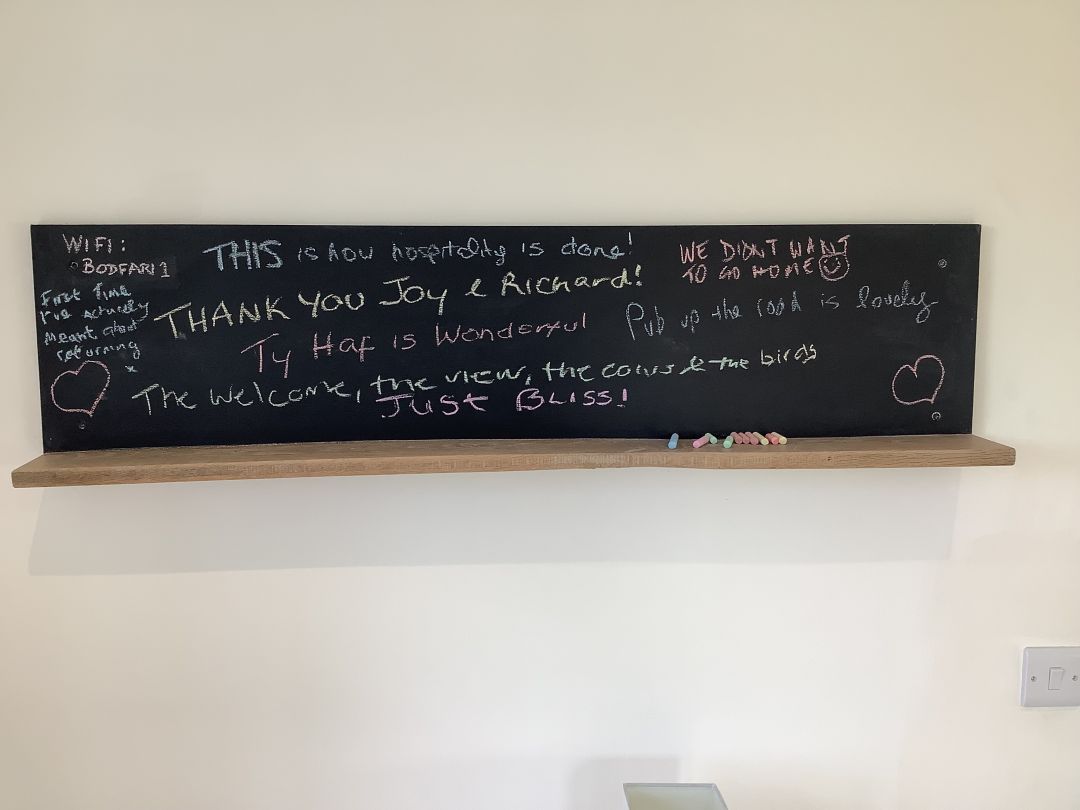 WIFI:
BODFARI 1
First Time
I've actually
meant about
returning
x
THIS is how hospitality is done!
THANK YOU Joy & Richard!
Ty Haf is Wonderful
The welcome, the view, the cows & the birds
Just Bliss!
WE DIDNT WANT
TO GO HOME
Pub up the road is lovely